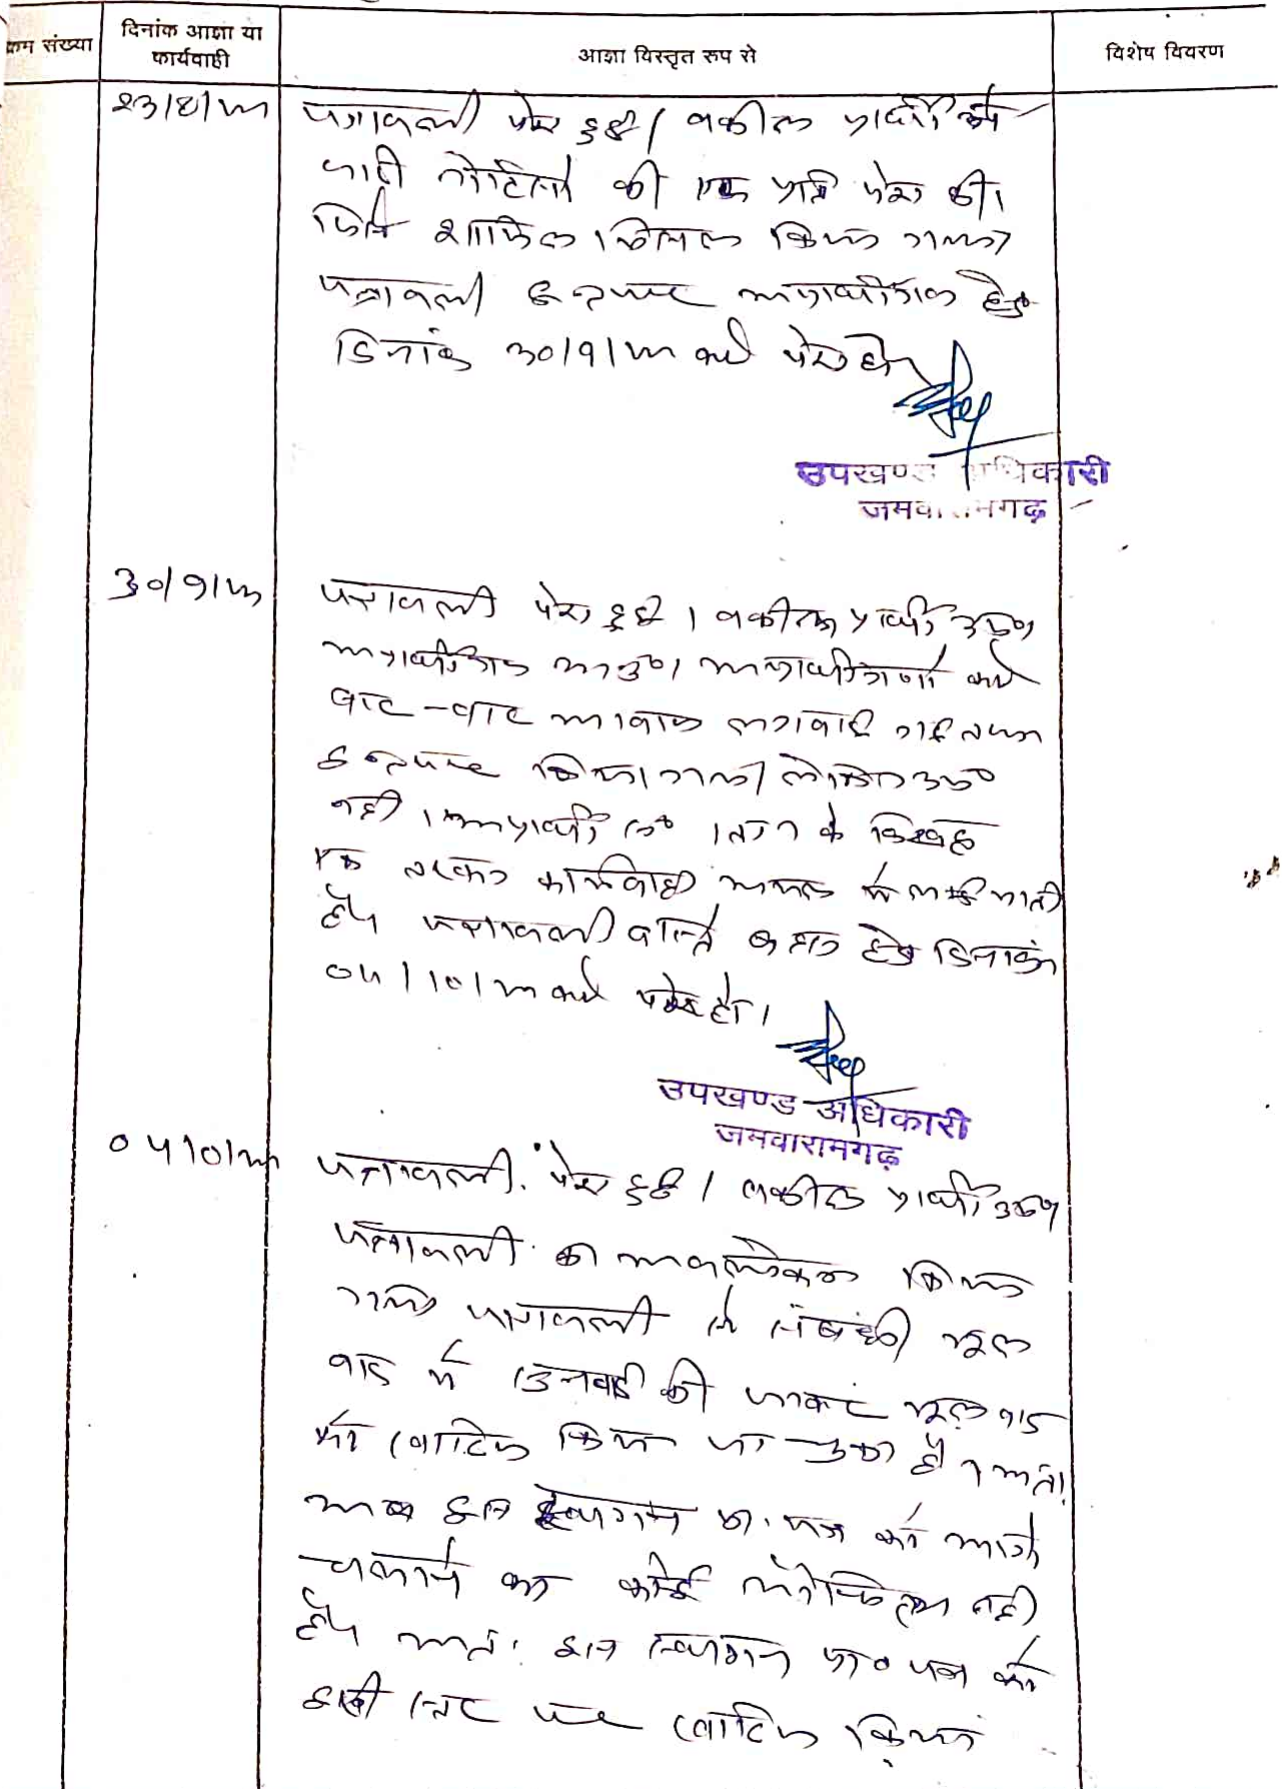 क्रम संख्या
दिनांक आज्ञा या कार्यवाही
आज्ञा विस्तृत रूप से
विशेष विवरण
पत्रावली पेश हुई। वकील प्रार्थी ने
जारी नोटिसों की एक प्रति पेश की।
जिसे शामिल मिसल किया गया।
पत्रावली इन्तजार अप्रार्थीगण हेतु
दिनांक 30/9/ को पेश हो
उपखण्ड अधिकारी
जमवारामगढ़
30/9/
पत्रावली पेश हुई। वकील प्रार्थी उप०
अप्रार्थीगण अनु०। अप्रार्थीगणों को
बार-बार आवाज लगवाई गई तथा
इन्तजार किया गया। लेकिन उप०
नही। अप्रार्थी के विरूद्ध
एक तरफा कार्यवाही अमल में लाई जाती
है। पत्रावली वास्ते बहस हेतु दिनांक
को पेश हो।
उपखण्ड अधिकारी
जमवारामगढ़
पत्रावली पेश हुई। वकील प्रार्थी उप०
पत्रावली का अवलोकन किया
गया। पत्रावली से संबंधी मूल
वाद में सुनवाई की जाकर मूल वाद
को खारिज किया जा चुका है। अतः
अब इस स्थगन प्रा. पत्र को आगे
चलाने का कोई औचित्य नही
है। अतः इस स्थगन प्रा० पत्र को
इसी स्तर पर खारिज किया